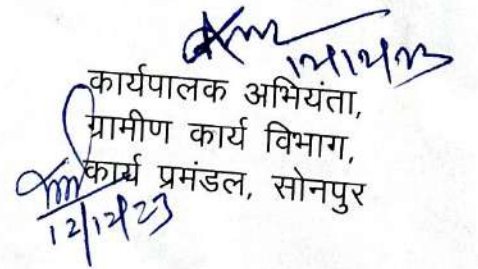 12/12/23
कार्यपालक अभियंता,
ग्रामीण कार्य विभाग,
कार्य प्रमंडल, सोनपुर
12/12/23